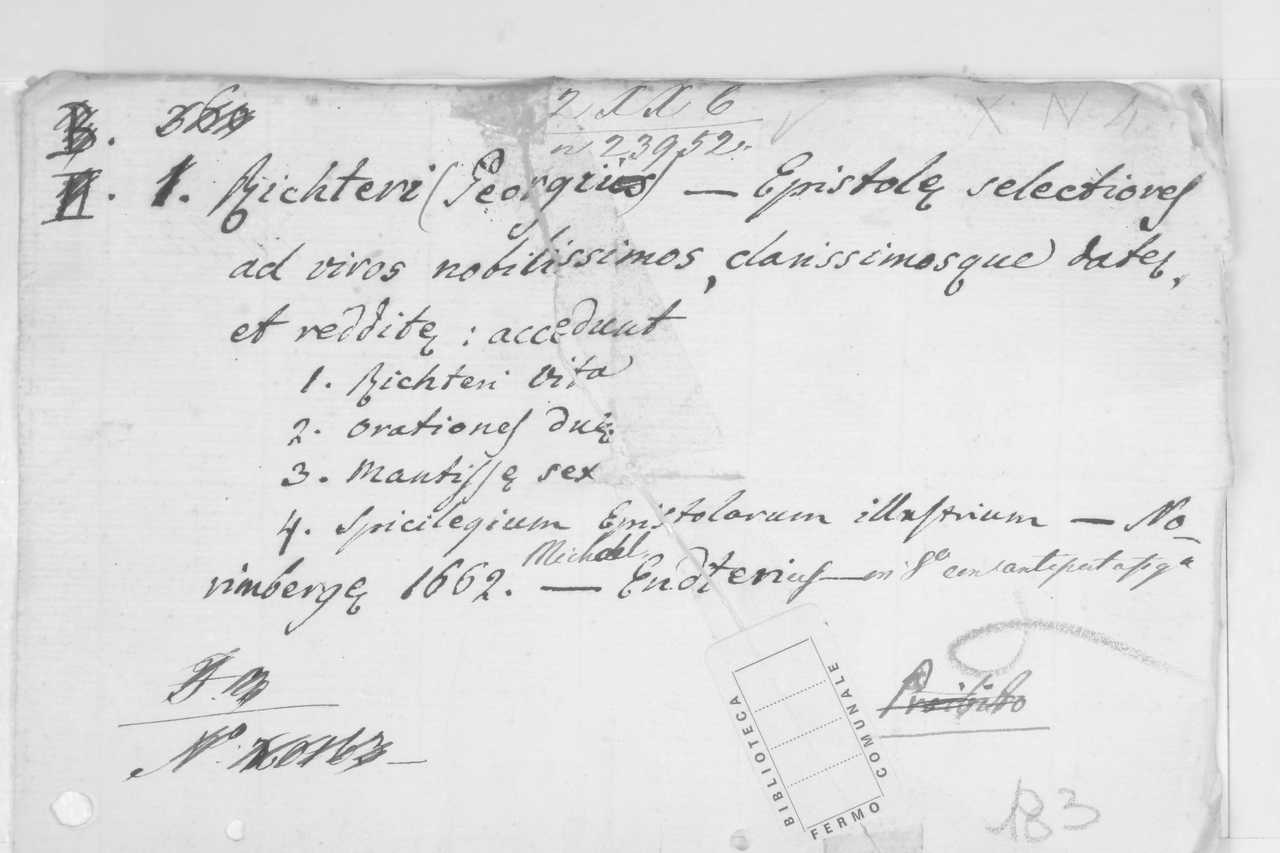 2 X X 6
X N 4
n 23952.
1. Richteri (Georgii) — Epistolę selectiores
ad viros nobilissimos, clarissimosque datę,
et redditę : accedunt
1. Richteri vita
2. Orationes duę
3. Mantissę sex
4. Spicilegium Epistolarum illustrium — No-
rimbergę 1662. — Michael Endterius — in 8º con antiporta
Proibito
Nº
BIBLIOTECA
COMUNALE
FERMO
183